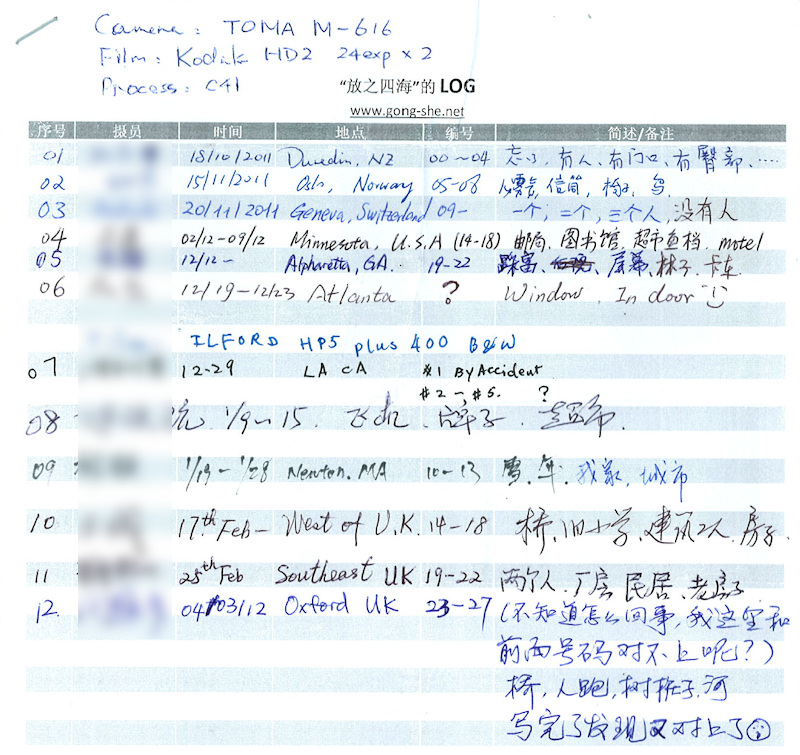 Camera: TOMA M-616
Film: Kodak HD2 24exp x 2
Process: C41
“放之四海”的 LOG
www.gong-she.net
序号 摄员 时间 地点 编号 简述/备注
01 18/10/2011 Dunedin, NZ 00~04 忘了，有人、有门口、有臀部、....
02 15/11/2011 Oslo, Norway 05-08 信筒，椅子，鸟
03 20/11/2011 Geneva, Switzerland 09- 一个；二个，三个人，没有人
04 02/12-09/12 Minnesota, U.S.A (14-18) 邮局、图书馆，超市鱼档，motel
05 12/12- Alpharetta, GA. 19-22 屏幕、林子、卡车
06 12/19-12/23 Atlanta ? Window. In door
ILFORD HP5 plus 400 B&W
07 12-29 LA CA #1 By Accident
#2-, #5. ?
08 1/9~15. 飞机. 牌子. 超市.
09 1/19-1/28 Newton, MA 10-13 雪，车，我家，城市
10 17th Feb- West of U.K. 14-18 桥、旧小学、建筑工人、房子
11 25th Feb Southeast UK 19-22 两个人、厂房 民居、老房子
12. 04/03/12 Oxford UK 23-27 (不知道怎么回事，我这里和
前面号码对不上呢？)
桥，人跑，树桩子，河
写完了发现又对上了